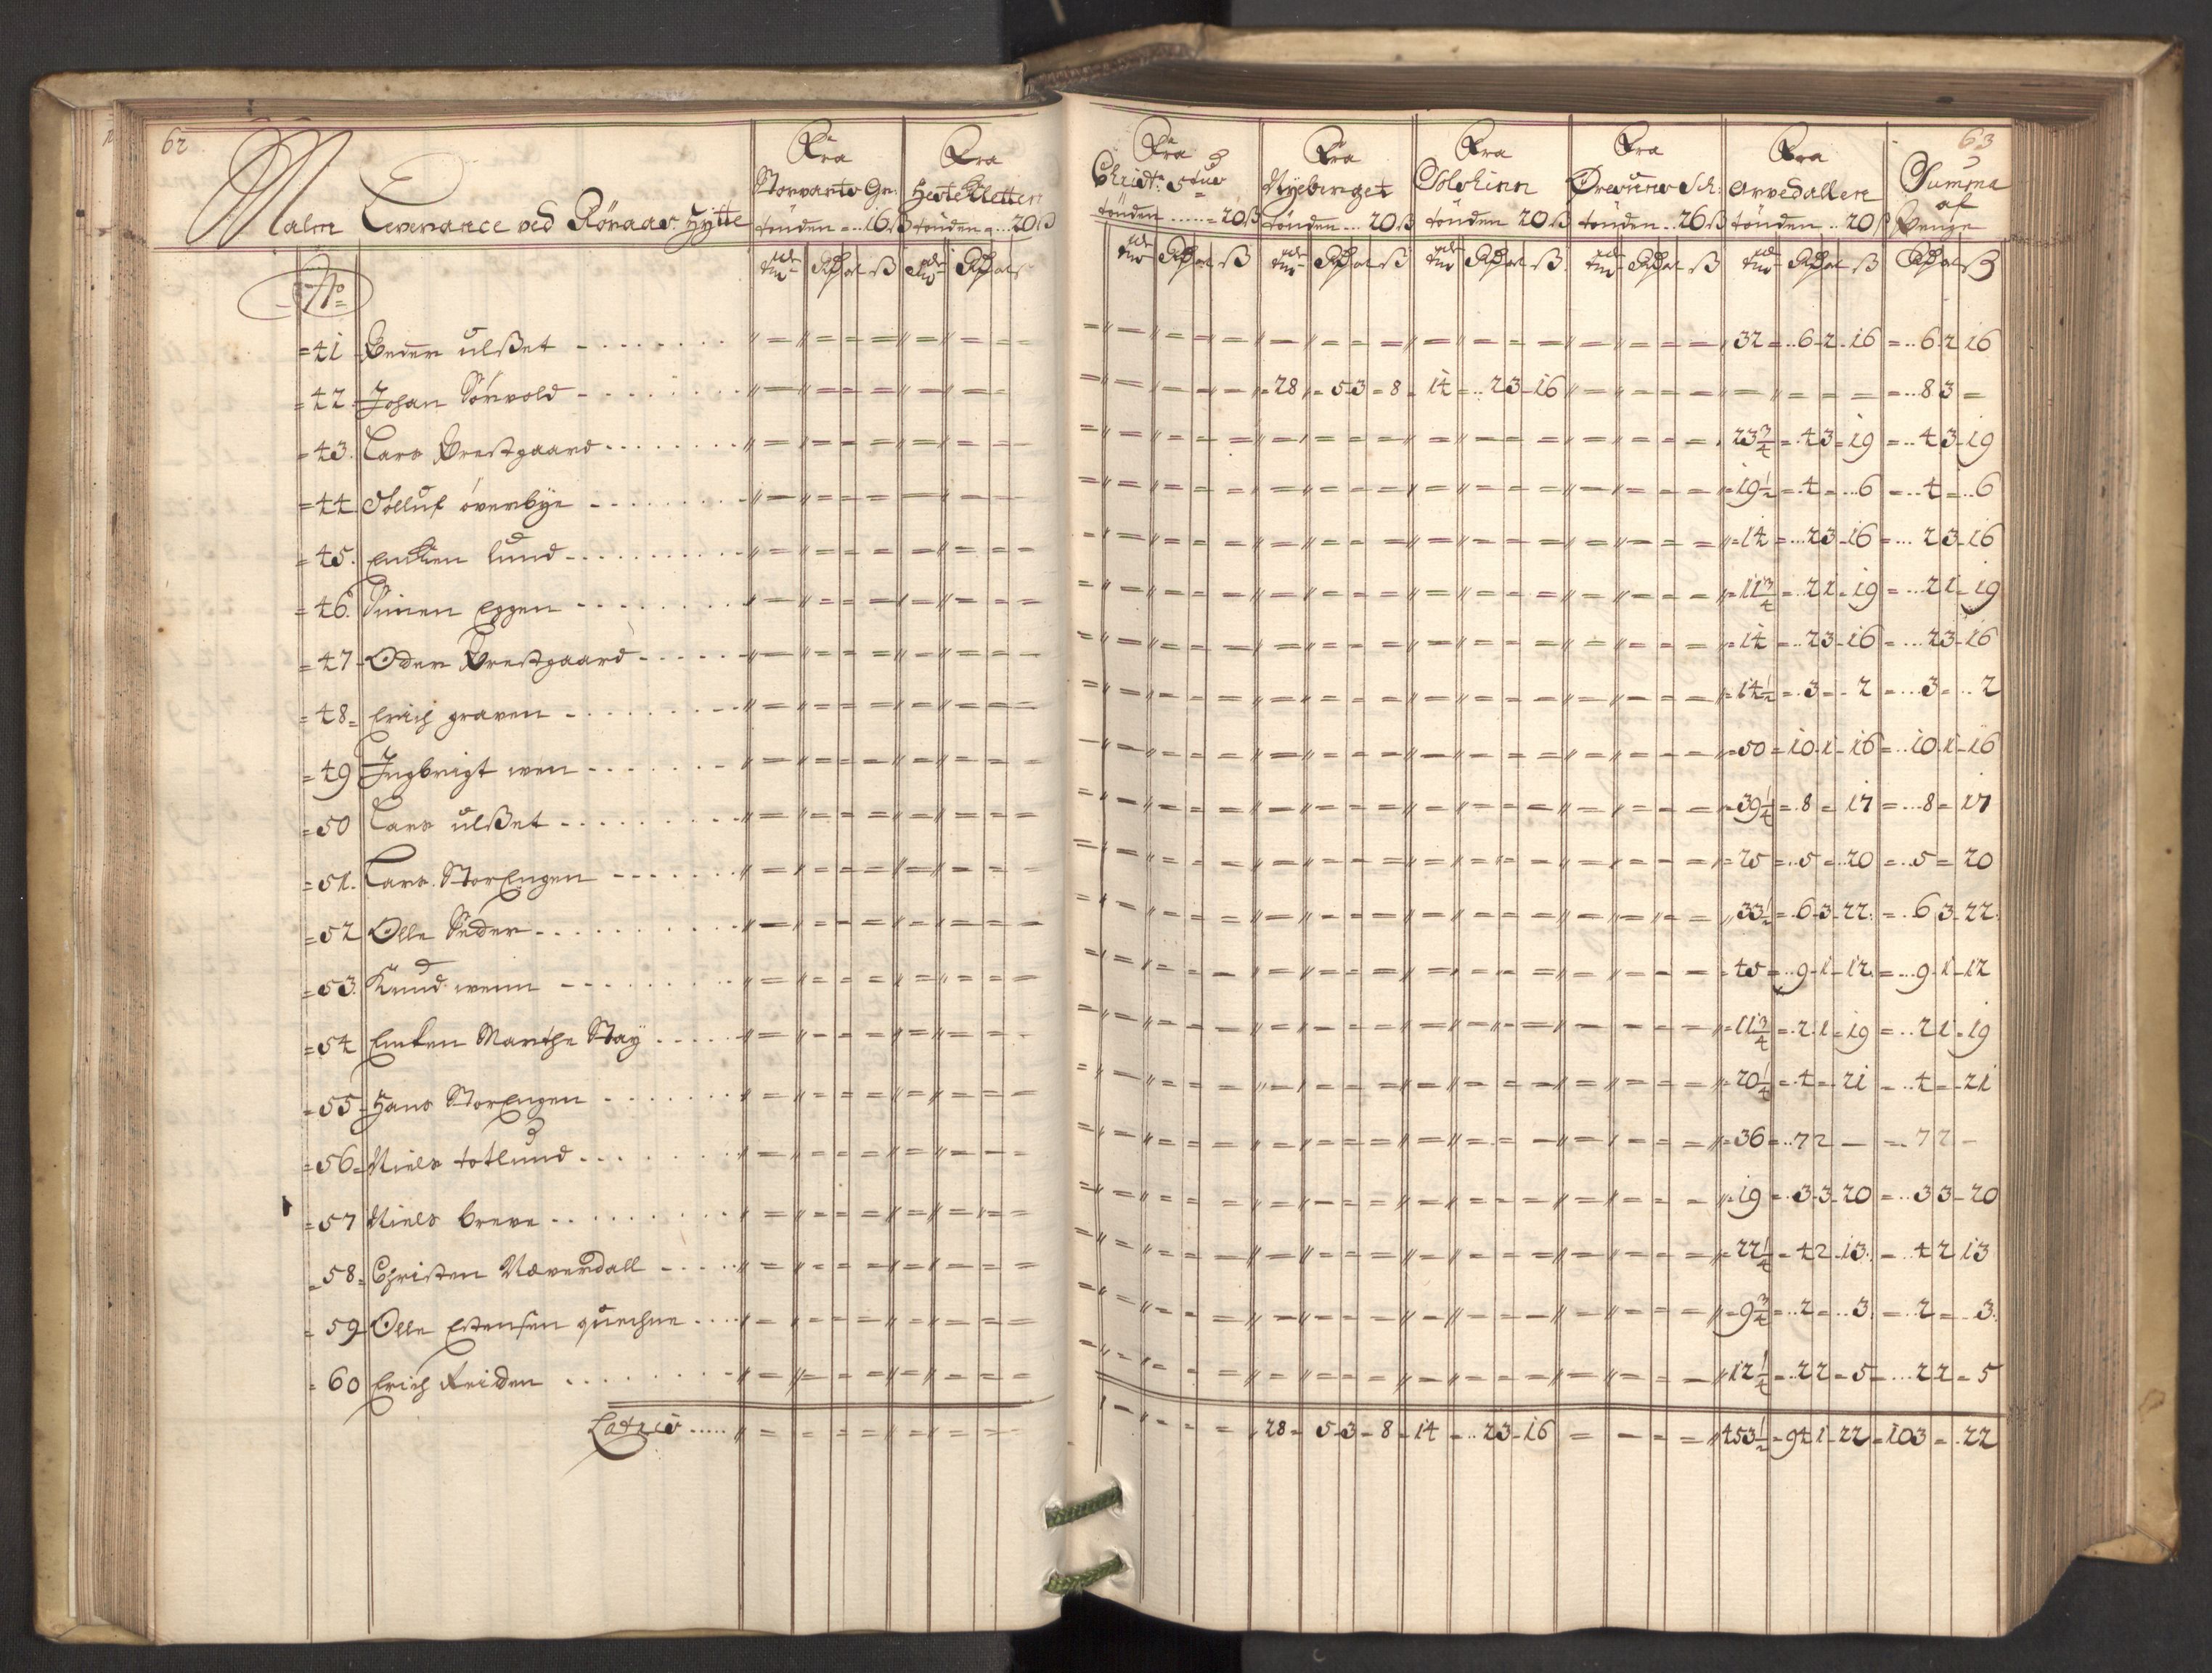 62
Malm Leverance ved Röraas Hytte
Fra Storvarts Gr: tönden = ... 16 ß
Fra Hesteklettere tönden = ... 20 ß
No
= 41 Peder ulßet
= 42 Johan Sörvold
= 43. Lars Prestgaard
= 44 Stelluf överbÿe
= 45. Encken lund
= 46. Simen Eggen
= 47 Oder Prestgaard
= 48 = Erich graven
= 49 Jngbrigt wen
= 50 Lars ulßet
= 51. Lars StorEngen
= 52 Olle Seder
= 53. Knud wenn
= 54 Encken Marthe Staÿ
= 55 Hans StorEngen
= 56 = Niels totlund
= 57 Niels breve
= 58 = Christen Næverdall
= 59 Olle Estensen quechne
= 60 Erich Reidden
Latris .....
63
Fra Christ: 5tus tönden ...... = 20 ß
Fra Nÿeberget tönden ... 20 ß
Fra Solskinn tönden 20 ß
Fra Öresuns Sch: tönden .. 26 ß
Fra arvedallen tönden .. 20 ß
Summa af Penge
32 = .. 6 - 2 - 16 = .. 6 2 16
28 = 5 3 = 8 = 14 = .. 2 3 - 16 = ... 8 3 =
23 3/4 = . 4 3 = 19 = .. 4 3 - 19
19 1/2 = . 4 = ... 6 = ... 4 = .. 6
14 = ... 2 3 - 16 = ... 2 3 - 16
11 3/4 = .. 2 1 = 19 = ... 2 1 = 19
14 = .. 2 3 - 16 = ... 2 3 - 16
14 1/2 = .. 3 = .. 2 = ... 3 = .. 2
50 = 10 - 1 - 16 = .. 10 . 1 - 16
39 1/4 = .. 8 = 17 = ... 8 = 17
25 = .. 5 = .. 20 = ... 5 = 20
33 1/2 = .. 6 - 3 - 22 . = .. 6 3 - 22 .
45 = .. 9 - 1 - 12 . = ... 9 - 1 - 12
11 3/4 = .. 2 . 1 = 19 = ... 2 1 = 19
20 1/4 = . 4 = 21 = .. 4 = 21
36 = .. 7 2 — = .. 7 2 —
19 = .. 3 - 3 - 20 = ... 3 3 - 20
22 1/4 = . 4 2 - 13 . = ... 4 2 13
9 3/4 = .. 2 = ... 3 . = .. 2 = .. 3 .
12 1/4 = .. 2 2 = 5 = .... 2 2 = 5
28 = 5 - 3 = 8 = 14 = .. 2 3 - 16 = 453 1/2 = 94 1 - 22 = 103 = . 22